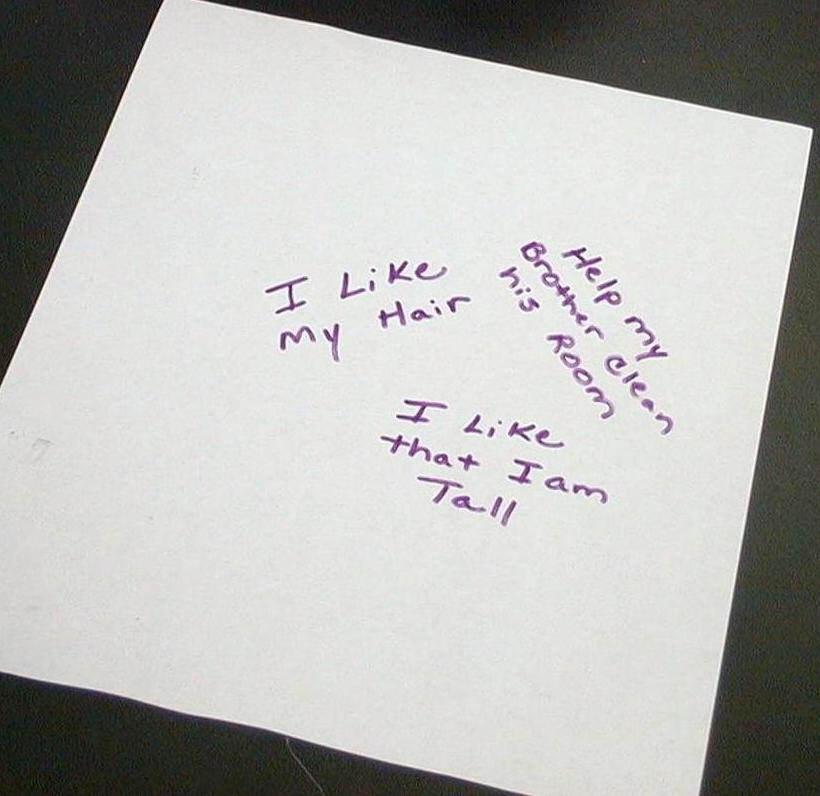 I Like
My Hair
Help my
Brother clean
his Room
I Like
that I am
Tall